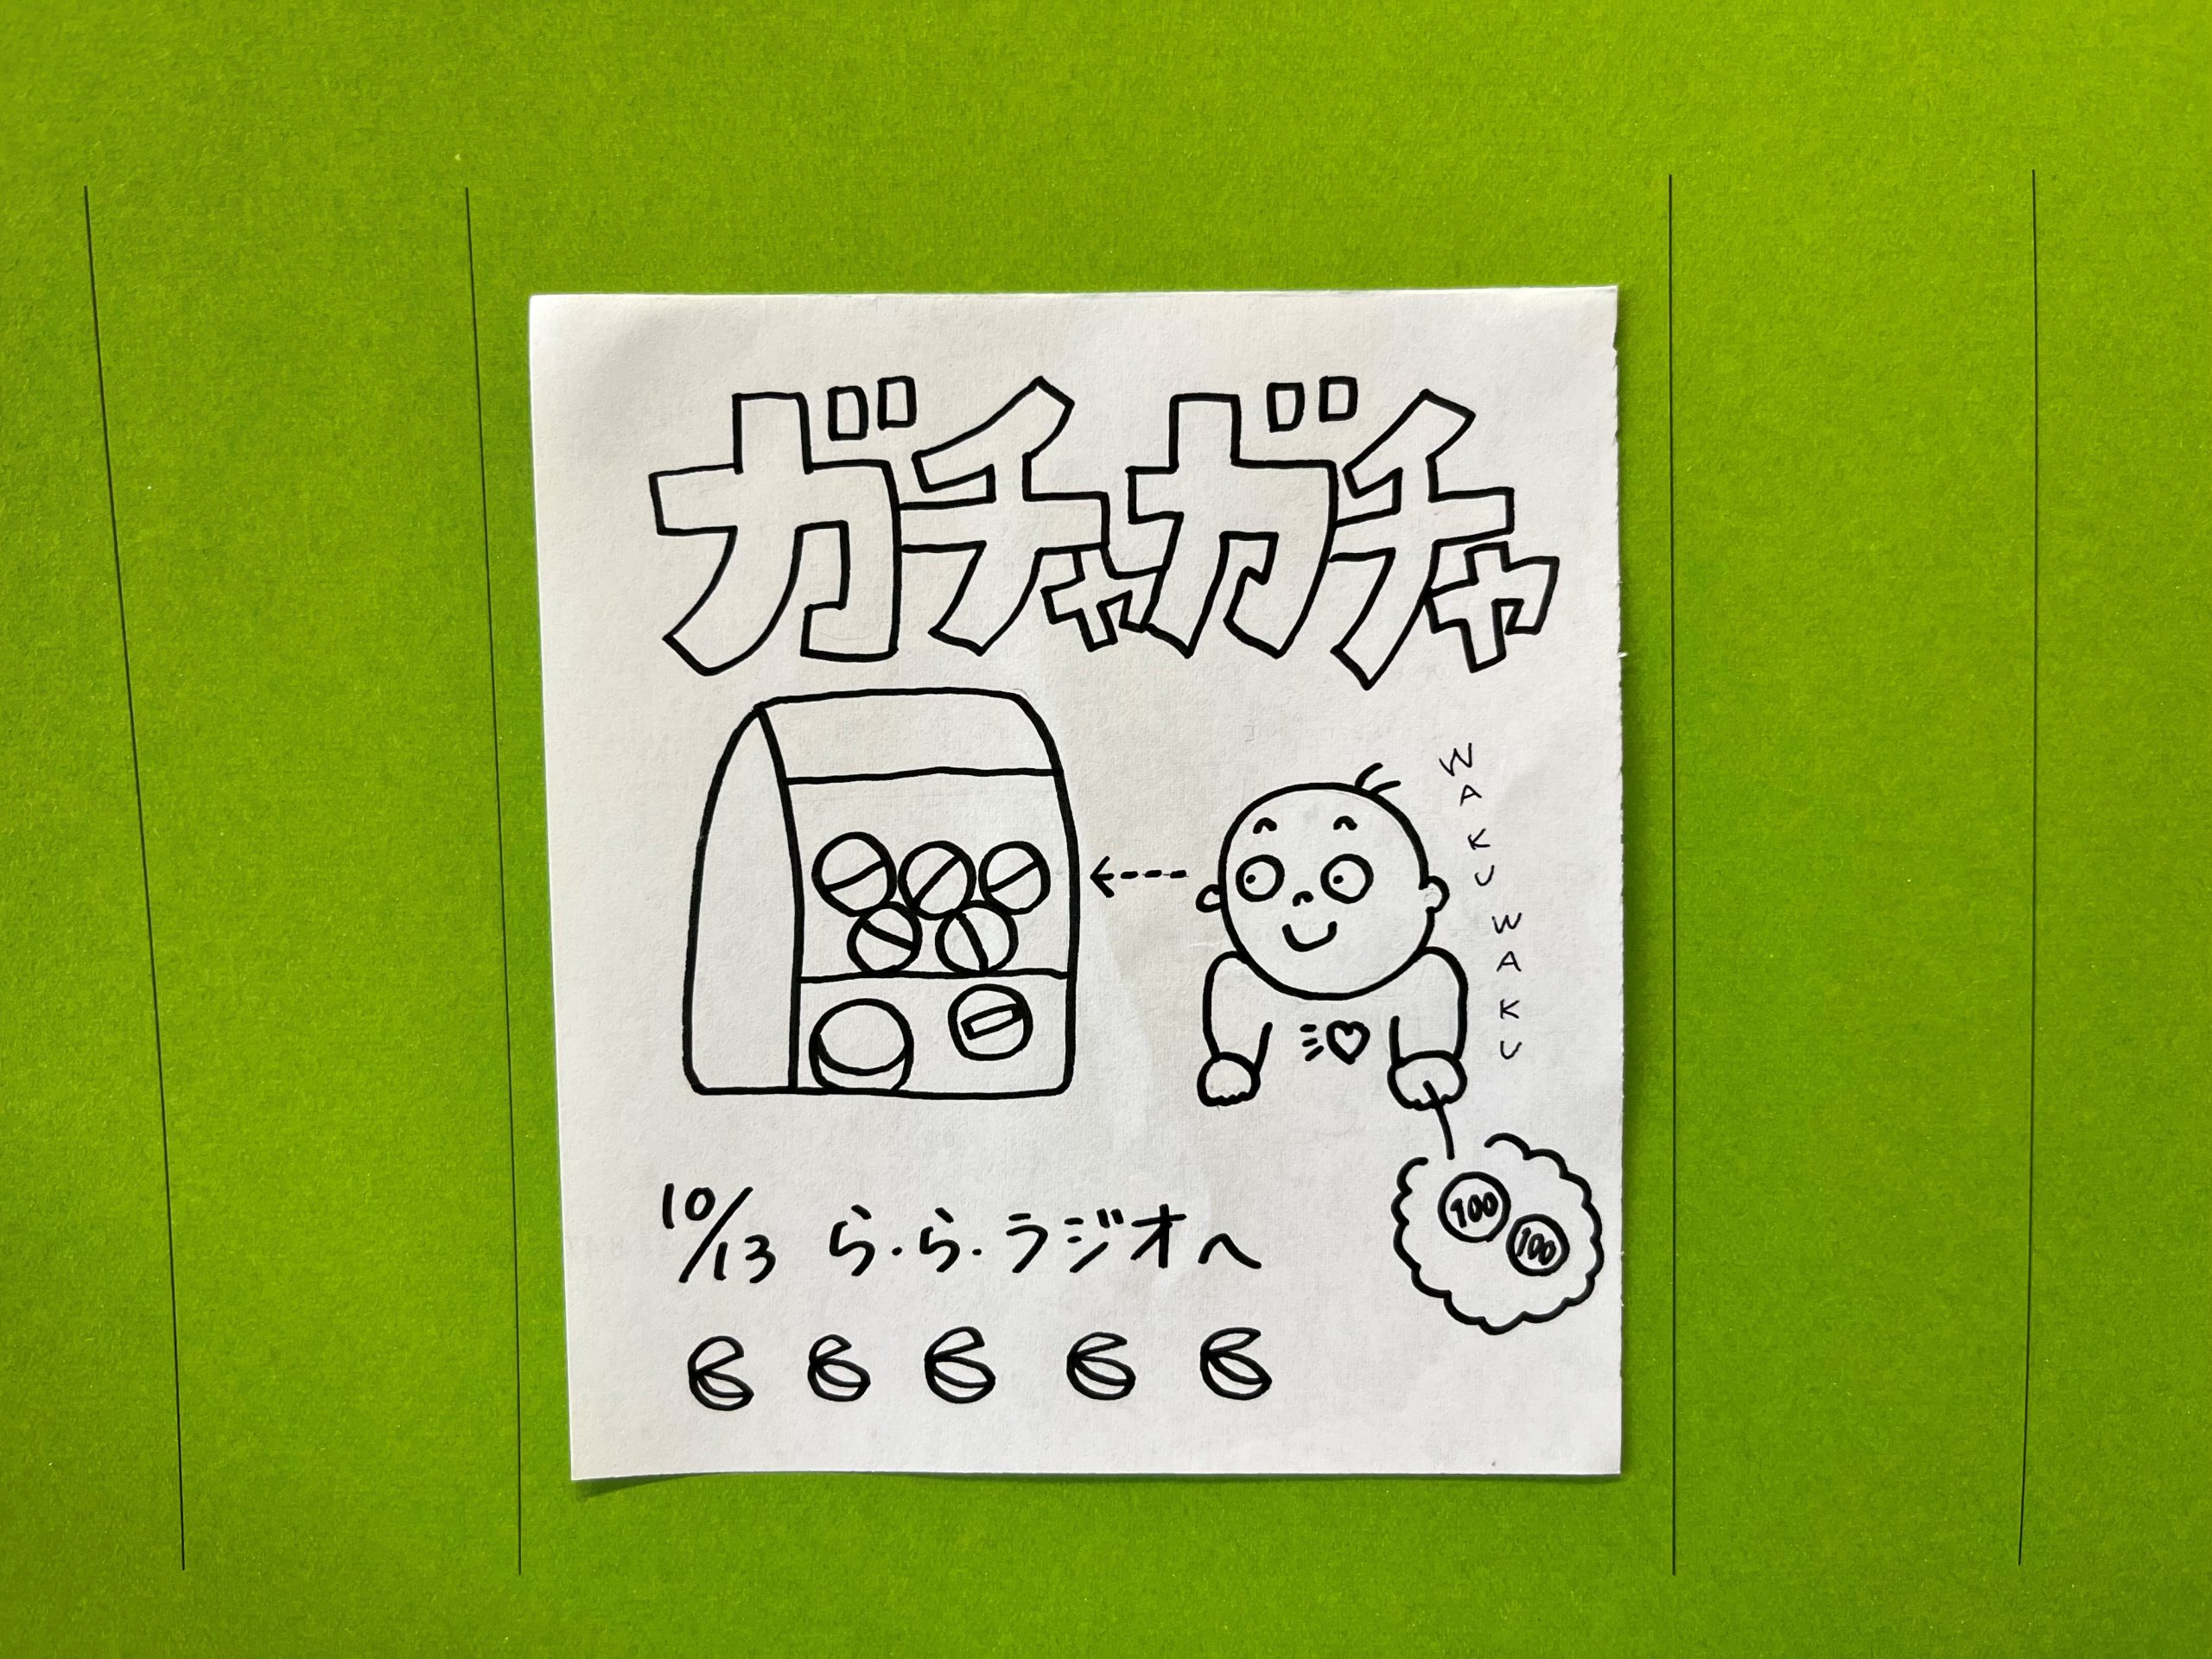 ガチャガチャ
WAKU
WAKU
100
100
10/13 ら.ら.ラジオへ